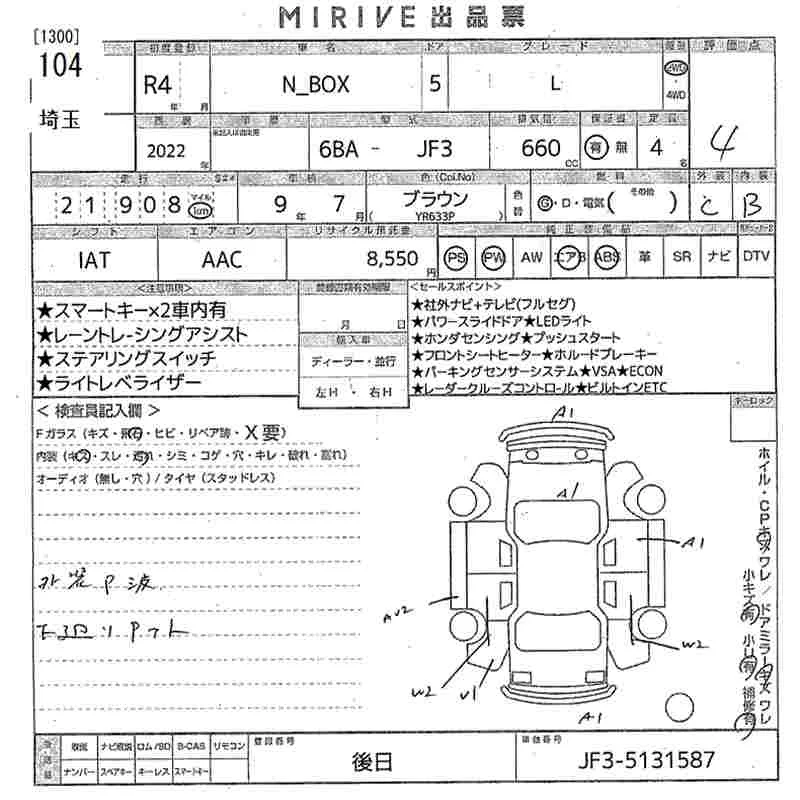 MIRIVE出品票
[1300]
104
埼玉
初度登録 車名 ドア グレード 評価点
R4 年 月 N_BOX 5 L 2WD ・ 4WD 4
型式 排気量 定員
2022 年 6BA - JF3 660 CC 有 無 4 名
走行 車検 色 (Col.No) 燃料 その他 外装 内装
21908 マイル km 9 年 7 月 ブラウン ( YR633P ) 色替 G・ロ・電気( ) C B
シフト エアコン リサイクル預託金
IAT AAC 8,550 円 PS PW AW エアB ABS 革 SR ナビ DTV
<注意事項>
★スマートキー×2車内有
★レーントレ-シングアシスト
★ステアリングスイッチ
★ライトレベライザー
月 日
輸入車
ディーラー・並行
左H ・ 右H
<セールスポイント>
★社外ナビ+テレビ(フルセグ)
★パワースライドドア★LEDライト
★ホンダセンシング★プッシュスタート
★フロントシートヒーター★ホルードブレーキー
★パーキングセンサーシステム★VSA★ECON
★レーダークルーズコントロール★ビルトインETC
キーロック
< 検査員記入欄 >
Fガラス (キズ・飛石・ヒビ・リペア跡・X要)
内装 (キズ・スレ・汚れ・シミ・コゲ・穴・キレ・破れ・割れ)
オーディオ (無し・穴) / タイヤ (スタッドレス)
外装P波
下廻りPット
A1
A1
A1
AU2
W2
W2
U1
A1
ホイル・CPキズワレ / ドアミラーキズワレ
小キズ有 小U有 補修有
取説 ナビ取説 ロム/SD B-CAS リモコン
ナンバー スペアキー キーレス スマートキー
登録番号
後日
車体番号
JF3-5131587